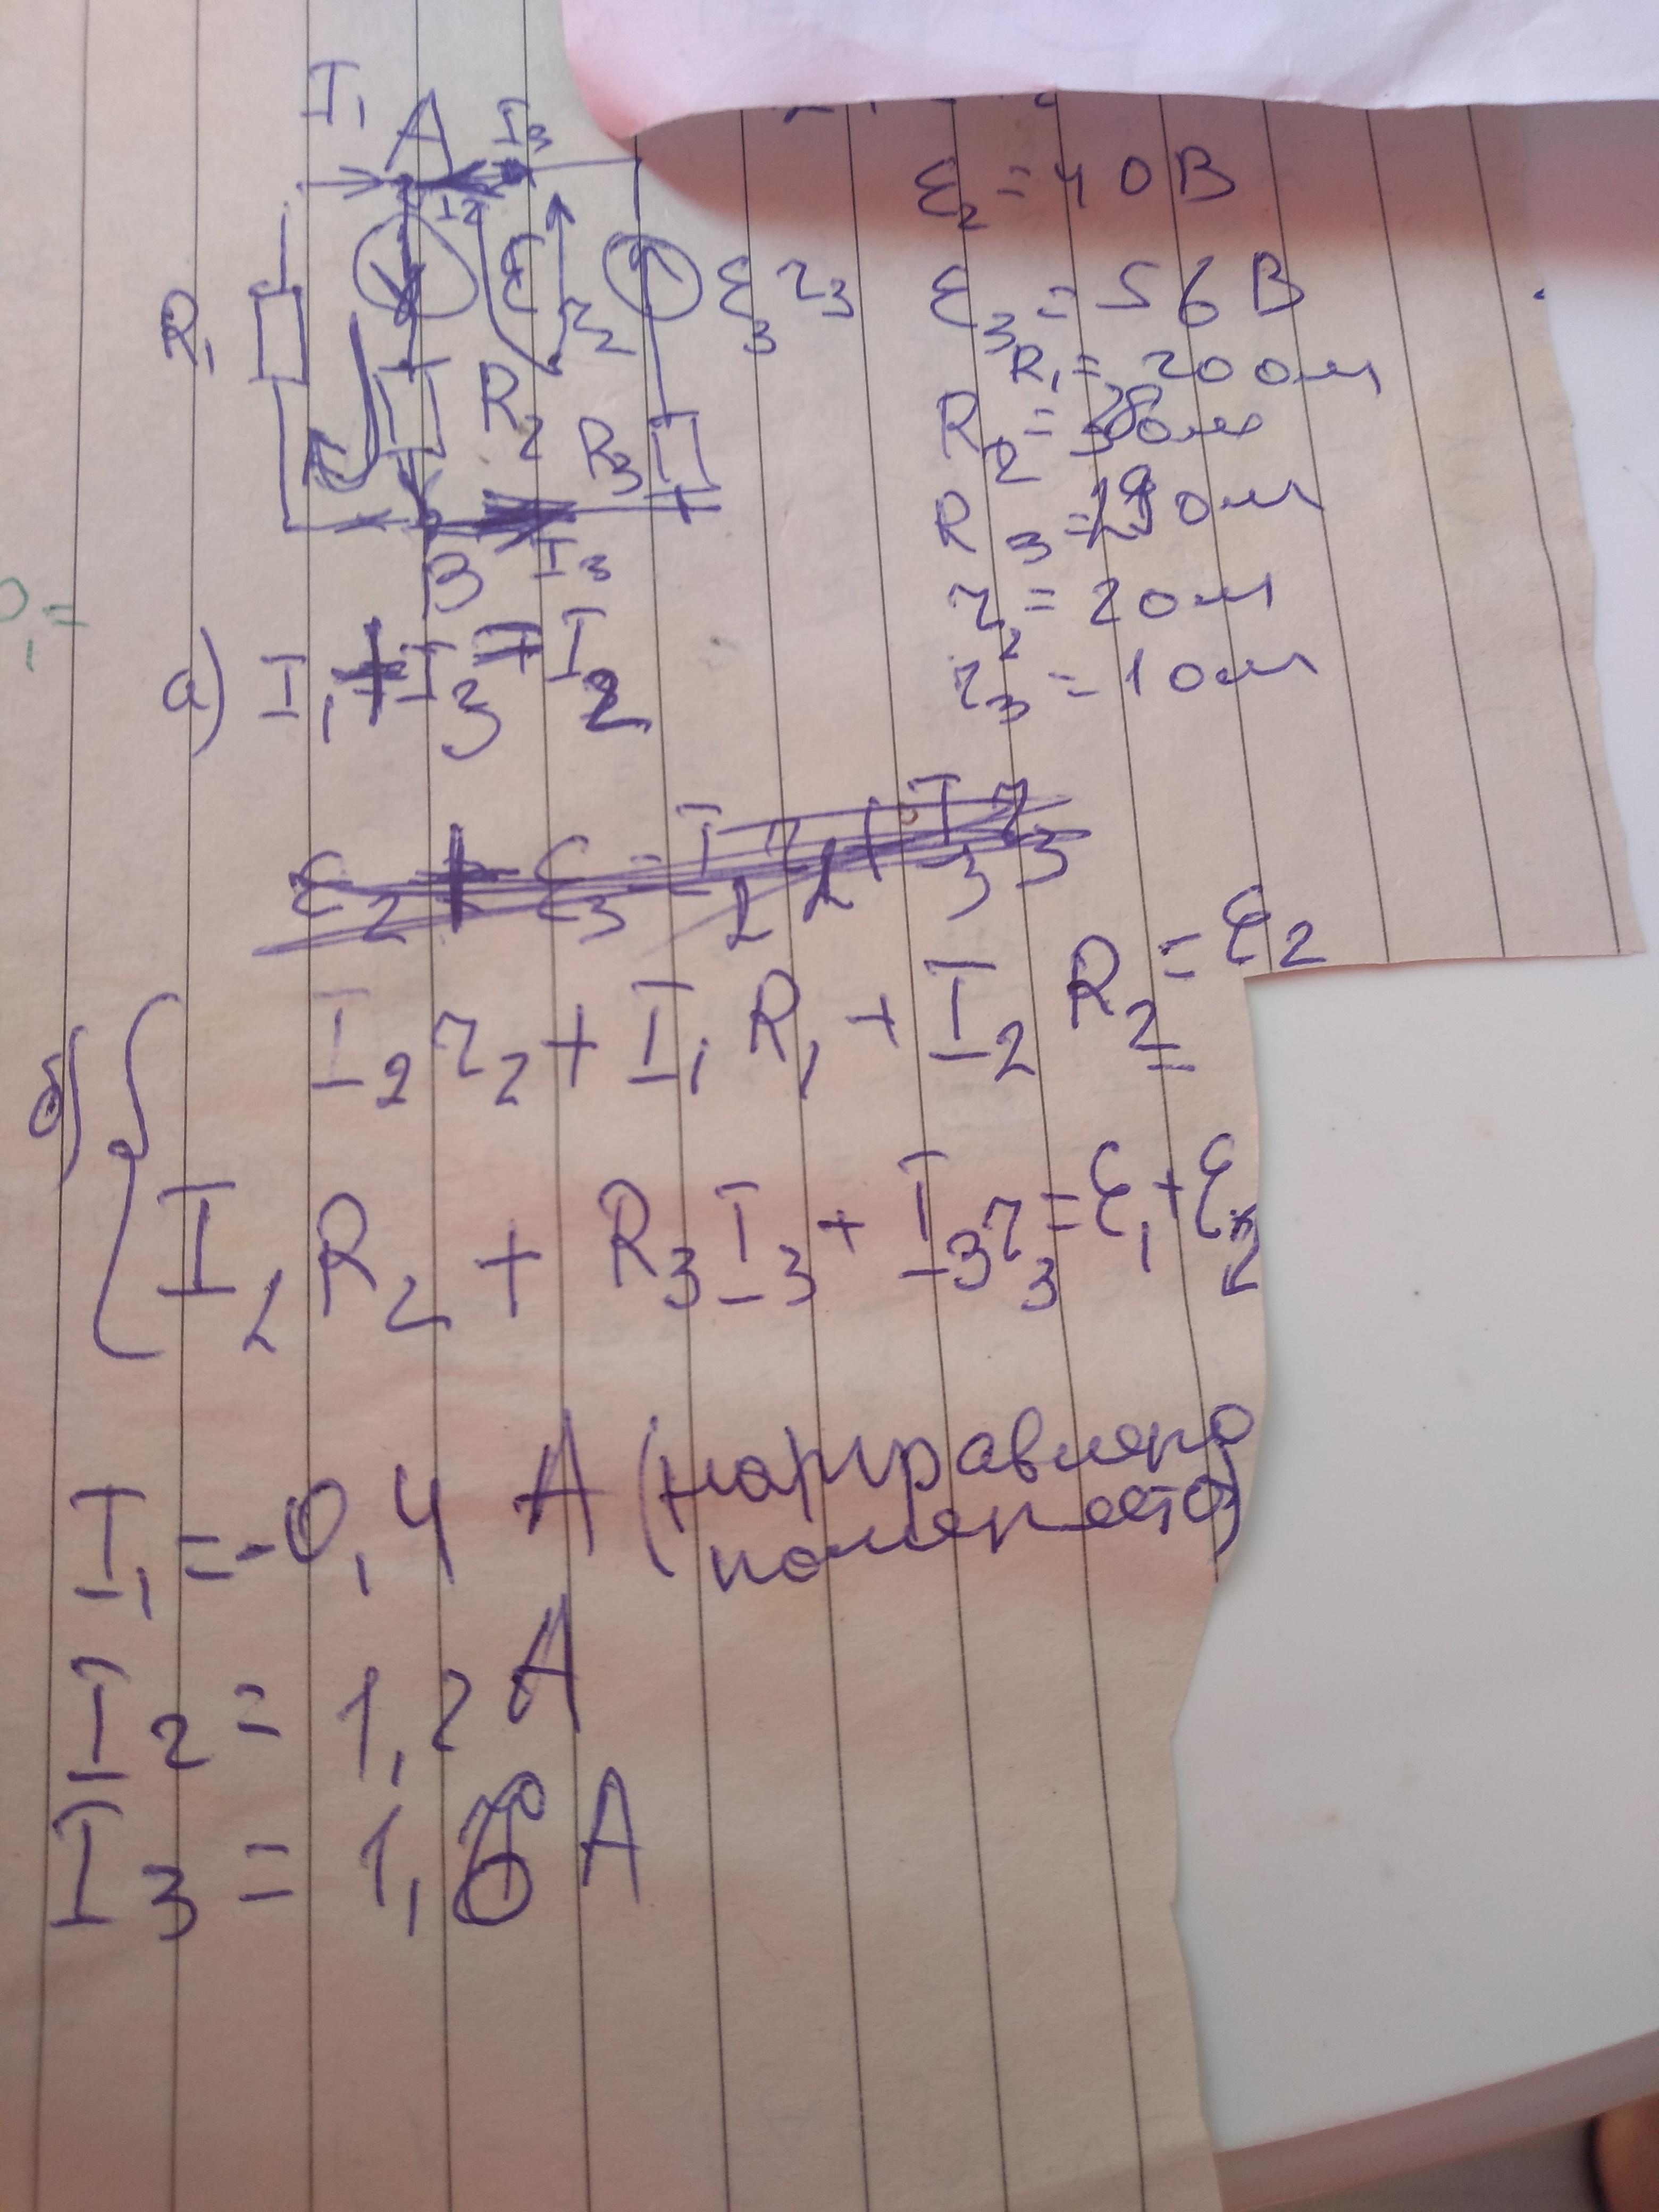 I₁ A I₃
I₂
R₁ ε r₂ ε₃ r₃
R₂ R₃
B I₃
ε₂ = 40В
ε₃ = 56В
R₁ = 20 Ом
R₂ = 38 Ом
R₃ = 19 Ом
r₂ = 2 Ом
r₃ = 1 Ом
а) I₁ + I₃ = I₂
ε₂ + ε₃ = I₂r₂ + I₃r₃
б) { I₂r₂ + I₁R₁ + I₂R₂ = ε₂
I₂R₂ + R₃I₃ + I₃r₃ = ε₁ + ε₂
I₁ = -0,4 А (направлено
I₂ = 1,2 А
I₃ = 1,6 А